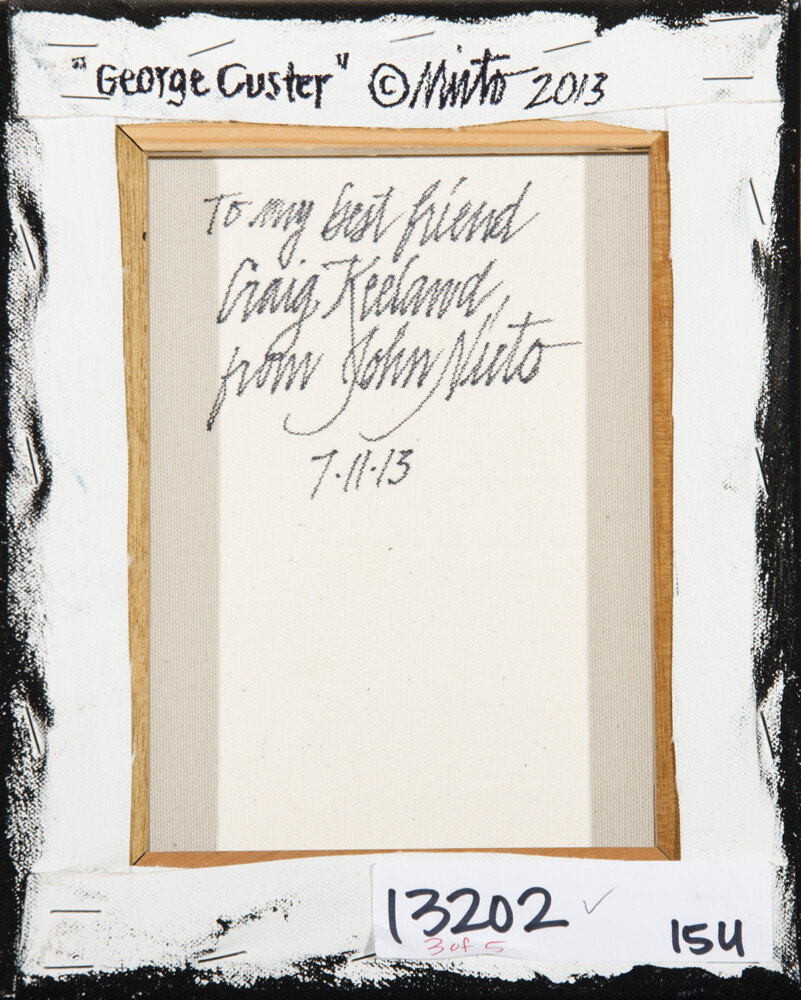 "George Custer" © Nieto 2013
To my best friend
Craig Keeland,
from John Nieto
7-11-13
13202 ✓
3 of 5
154